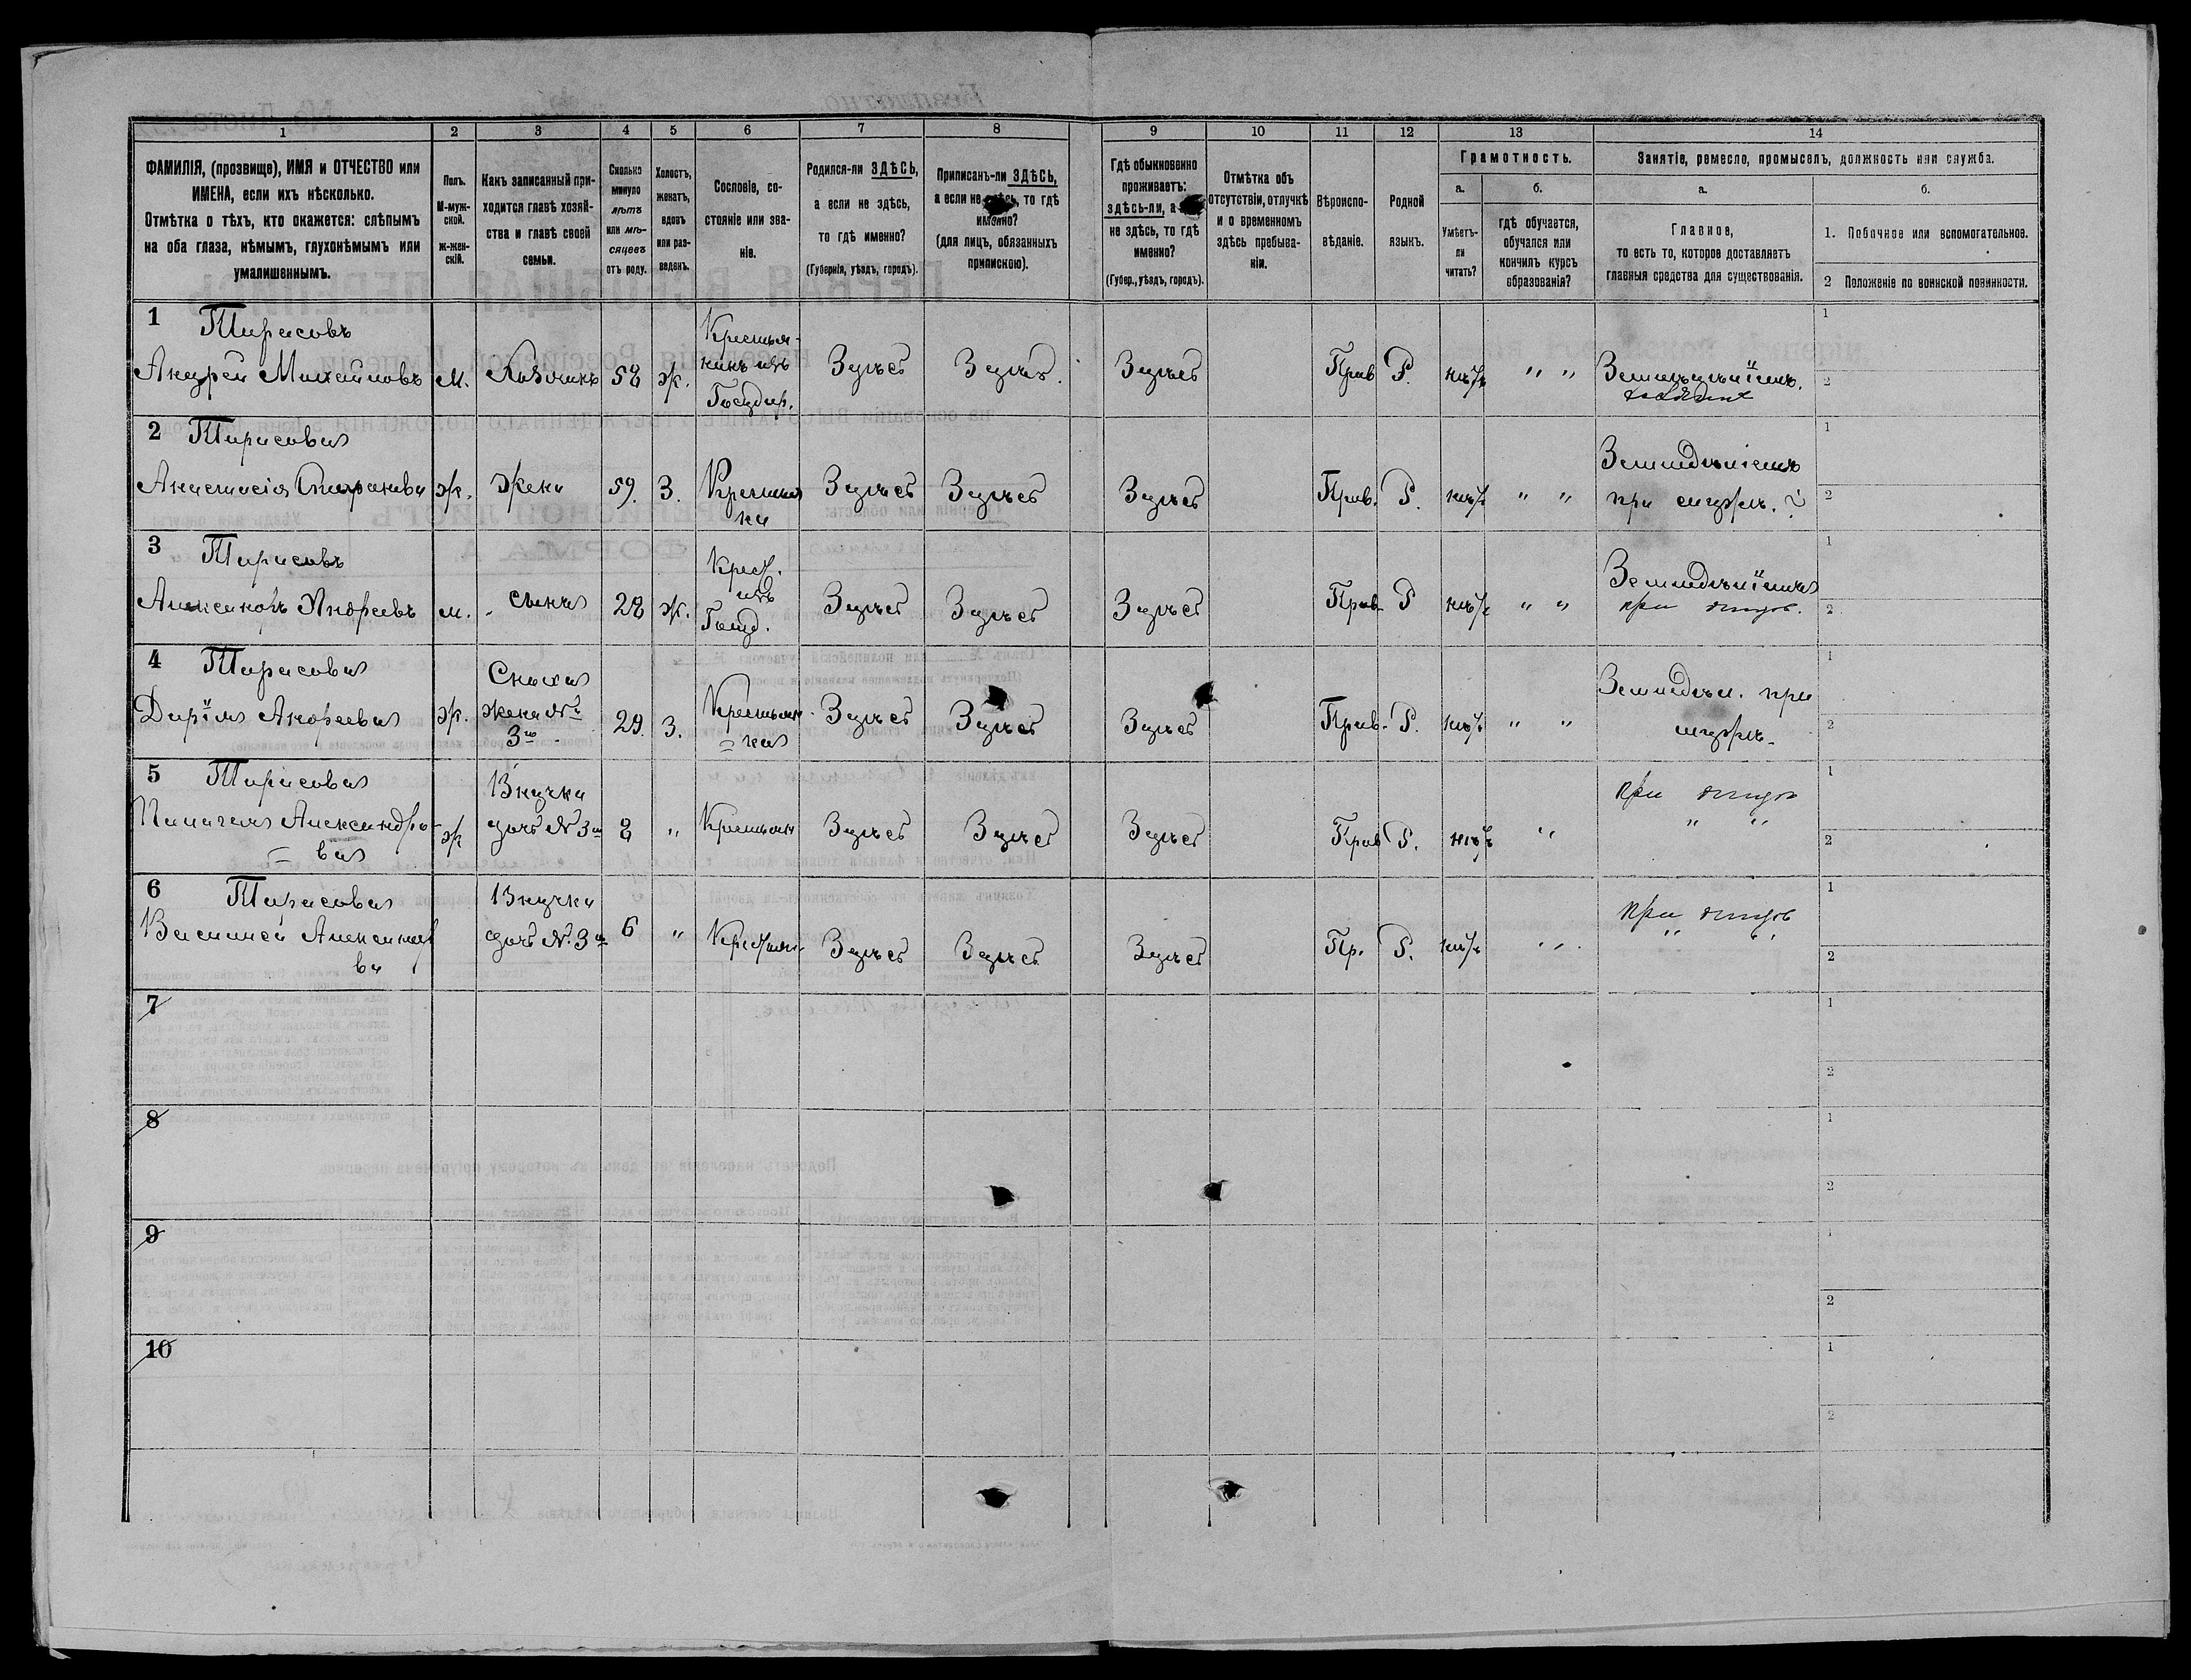 1 2 3 4 5 6 7 8 9 10 11 12 13 14
ФАМИЛІЯ, (прозвище), ИМЯ и ОТЧЕСТВО или
ИМЕНА, если ихъ нѣсколько.
Отмѣтка о тѣхъ, кто окажется: слѣпымъ
на оба глаза, нѣмымъ, глухонѣмымъ или
умалишеннымъ.
Полъ.
М-муж-
ской.
ж-жен-
скій.
Какъ записанный при-
ходится главѣ хозяй-
ства и главѣ своей
семьи.
Сколько
минуло
лѣтъ
или мѣ-
сяцевъ
отъ роду.
Холостъ,
женатъ,
вдовъ
или раз-
веденъ.
Сословіе, со-
стояніе или зва-
ніе.
Родился-ли ЗДѢСЬ,
а если не здѣсь,
то гдѣ именно?
(Губернія, уѣздъ, городъ).
Приписанъ-ли ЗДѢСЬ,
а если не здѣсь, то гдѣ
именно?
(для лицъ, обязанныхъ
припискою).
Гдѣ обыкновенно
проживаетъ:
здѣсь-ли, а
не здѣсь, то гдѣ
именно?
(Губер., уѣздъ, городъ).
Отмѣтка объ
отсутствіи, отлучкѣ
и о временномъ
здѣсь пребыва-
ніи.
Вѣроиспо-
вѣданіе.
Родной
языкъ.
Грамотность.
а.
Умѣетъ-
ли
читать?
б.
гдѣ обучается,
обучался или
кончилъ курсъ
образованія?
Занятіе, ремесло, промыселъ, должность или служба.
а.
Главное,
то есть то, которое доставляетъ
главныя средства для существованія.
б.
1. Побочное или вспомогательное.
2 Положеніе по воинской повинности.
1 Тарасовъ
Андрей Михайловъ м. Хозяинъ 58 ж. Крестья-
нинъ изъ
Государ. Здѣсь Здѣсь. Здѣсь Прав Р. нѣтъ " " Земледѣліемъ.
хозяинъ
1
2
2 Тарасова
Анастасія ж. Жена 59. З. Крестьян
ка Здѣсь Здѣсь Здѣсь Прав. Р. нѣтъ " " Земледѣліемъ
при мужѣ.
1
2
3 Тарасовъ
Александръ Андреевъ м. сынъ 28 ж. Крест.
изъ
Госуд. Здѣсь Здѣсь Здѣсь Прав. Р нѣтъ " " Земледѣліемъ
при отцѣ.
1
2
4 Тарасова
Дарія Андреева ж. Сноха
жена №
3го 29. З. Крестьян
= ка Здѣсь Здѣсь Здѣсь Прав. Р. нѣтъ " " Земледѣл. при
мужѣ.
1
2
5 Тарасова
Пелагея Александро
= ва ж Внучка
дочь № 3го 8 " Крестьян Здѣсь Здѣсь Здѣсь Прав Р. нѣтъ " при отцѣ
" "
1
2
6 Тарасова
Александ
ва Внучка
дочь №. 3го 6 " Крестьян Здѣсь Здѣсь Здѣсь Пр. Р. нѣтъ " при отцѣ
" "
1
2
7
1
2
8
1
2
9
1
2
10
1
2